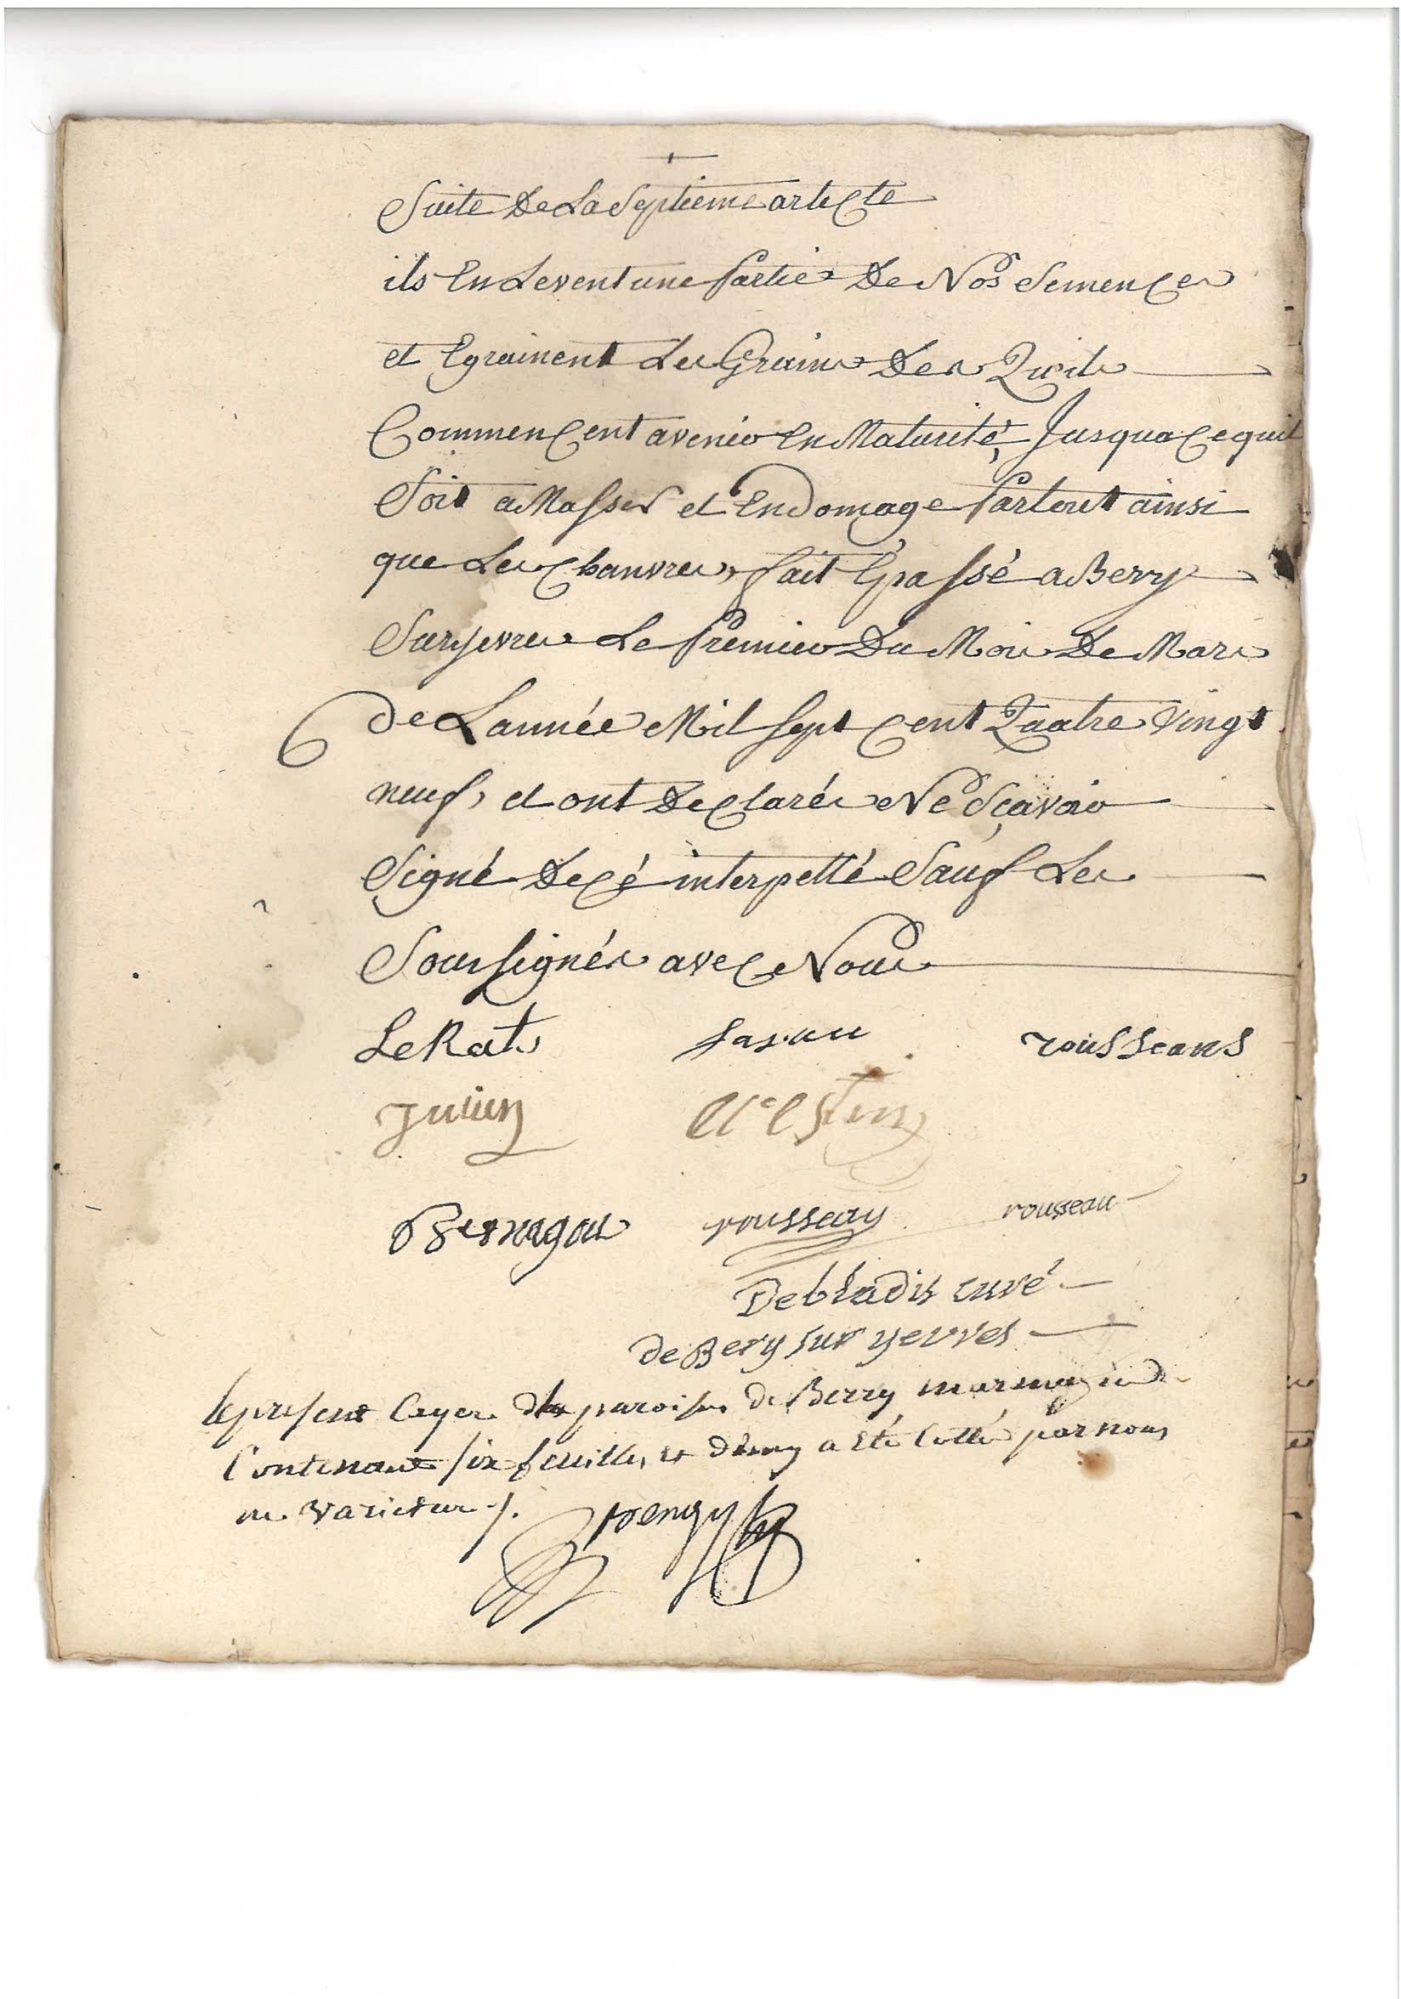 Suite De La Septieme articte
ils En Levent une Partie De Nos Semences
et Egrainent Les Grains Des Quils
Commencent a venir En Maturité, Jusqua ce quil
Soit a Masser et Endomage Partout ainsi
que Les Chanvres, fait Epassé a Berry
Suryevre Le Premier Du Mois De Mars
de Lannée Mil Sept Cent Quatre Vingt
neuf, et ont Declarés Ne Sçavoir
Signé De cé interpellé Sauf Les
Soussignés avec Nous
LeRat rousseaus
Julien
rousseau rousseau
curé
de Bery sur yevres
le present Cayer de la paroisse de Berry marmagne
Contenant six feuilles et demy a Eté Cotté par nous
ne varietur ./.